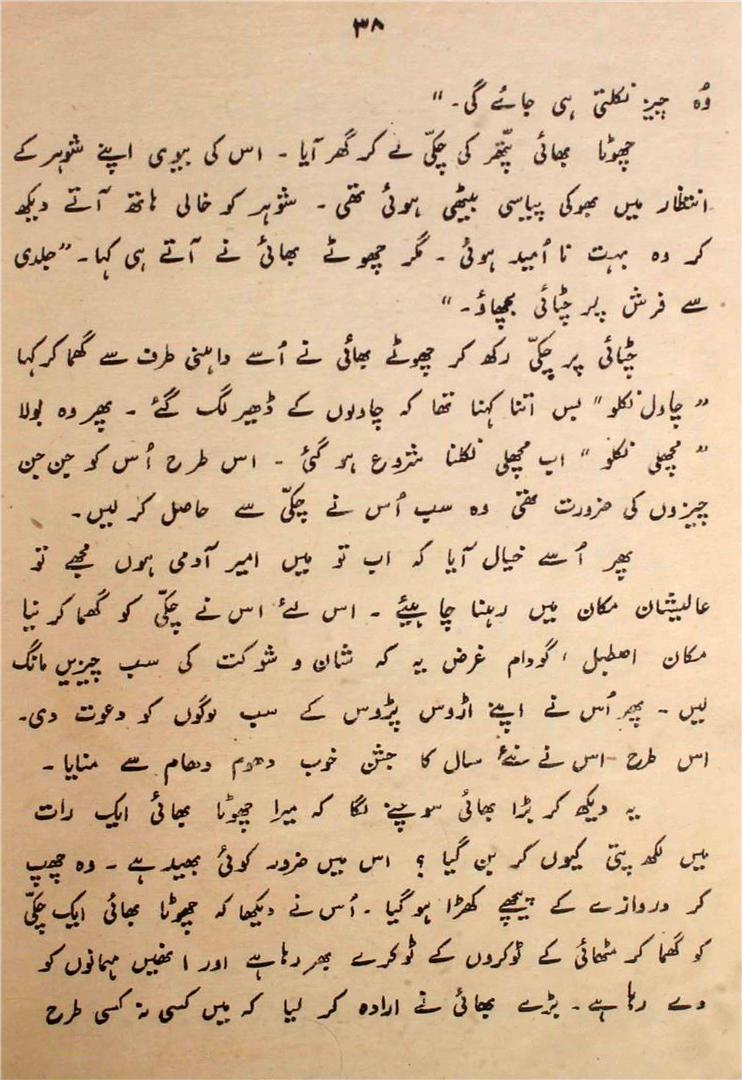 ۳۸
وُہ چیز نکلتی ہی جائے گی۔"
چھوٹا بھائی پتھر کی چکّی لے کر گھر آیا ۔ اس کی بیوی اپنے شوہر کے
انتظار میں بھوکی پیاسی بیٹھی ہوئی تھی ۔ شوہر کو خالی ہاتھ آتے دیکھ
کر وہ بہت نا اُمید ہوئی ۔ مگر چھوٹے بھائی نے آتے ہی کہا۔ "جلدی
سے فرش پر چٹائی بچھاؤ۔"
چٹائی پر چکّی رکھ کر چھوٹے بھائی نے اُسے داہنی طرف سے گھما کر کہا
"چاول نکلو" بس اتنا کہنا تھا کہ چاولوں کے ڈھیر لگ گئے ۔ پھر وہ بولا
"مچھلی نکلو" اب مچھلی نکلنا شروع ہو گئی ۔ اس طرح اُس کو جن جن
چیزوں کی ضرورت تھی وہ سب اُس نے چکّی سے حاصل کر لیں۔
پھر اُسے خیال آیا کہ اب تو میں امیر آدمی ہوں مجھے تو
عالیشان مکان میں رہنا چاہیئے ۔ اس لئے اس نے چکّی کو گھما کر نیا
مکان اصطبل ، گودام غرض یہ کہ شان و شوکت کی سب چیزیں مانگ
لیں ۔ پھر اُس نے اپنے اڑوس پڑوس کے سب لوگوں کو دعوت دی۔
اس طرح اس نے نئے سال کا جشن خوب دھوم دھام سے منایا ۔
یہ دیکھ کر بڑا بھائی سوچنے لگا کہ میرا چھوٹا بھائی ایک رات
میں لکھ پتی کیوں کر بن گیا ؟ اس میں ضرور کوئی بھید ہے ۔ وہ چھپ
کر دروازے کے پیچھے کھڑا ہو گیا ۔ اُس نے دیکھا کہ چھوٹا بھائی ایک چکّی
کو گھما کر مٹھائی کے ٹوکروں کے ٹوکرے بھر رہا ہے اور انھیں مہمانوں کو
دے رہا ہے ۔ بڑے بھائی نے ارادہ کر لیا کہ میں کسی نہ کسی طرح